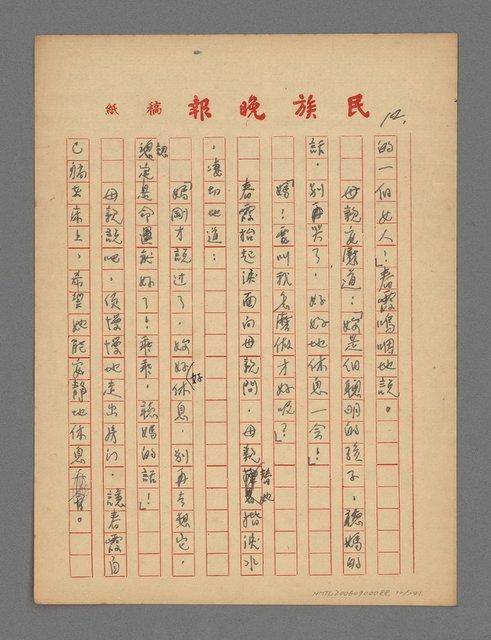 民族晚報 稿紙
12.
的一個女人！」春霞嗚咽地說。
母親安慰道：「妳是個聰明的孩子，聽媽的
話，別再哭了，好好地休息一會！」
「媽！要叫我怎麼做才好呢？」
春霞抬起淚面向母親問，母親替她揩淚水
，淒切地道：
「媽剛才說過了，妳好好休息，別再去想它，
認定是命運就好了！乖乖，聽媽的話！」
母親說吧，便慢慢地走出房門，讓春霞自
己躺在床上，希望她能安靜地休息。